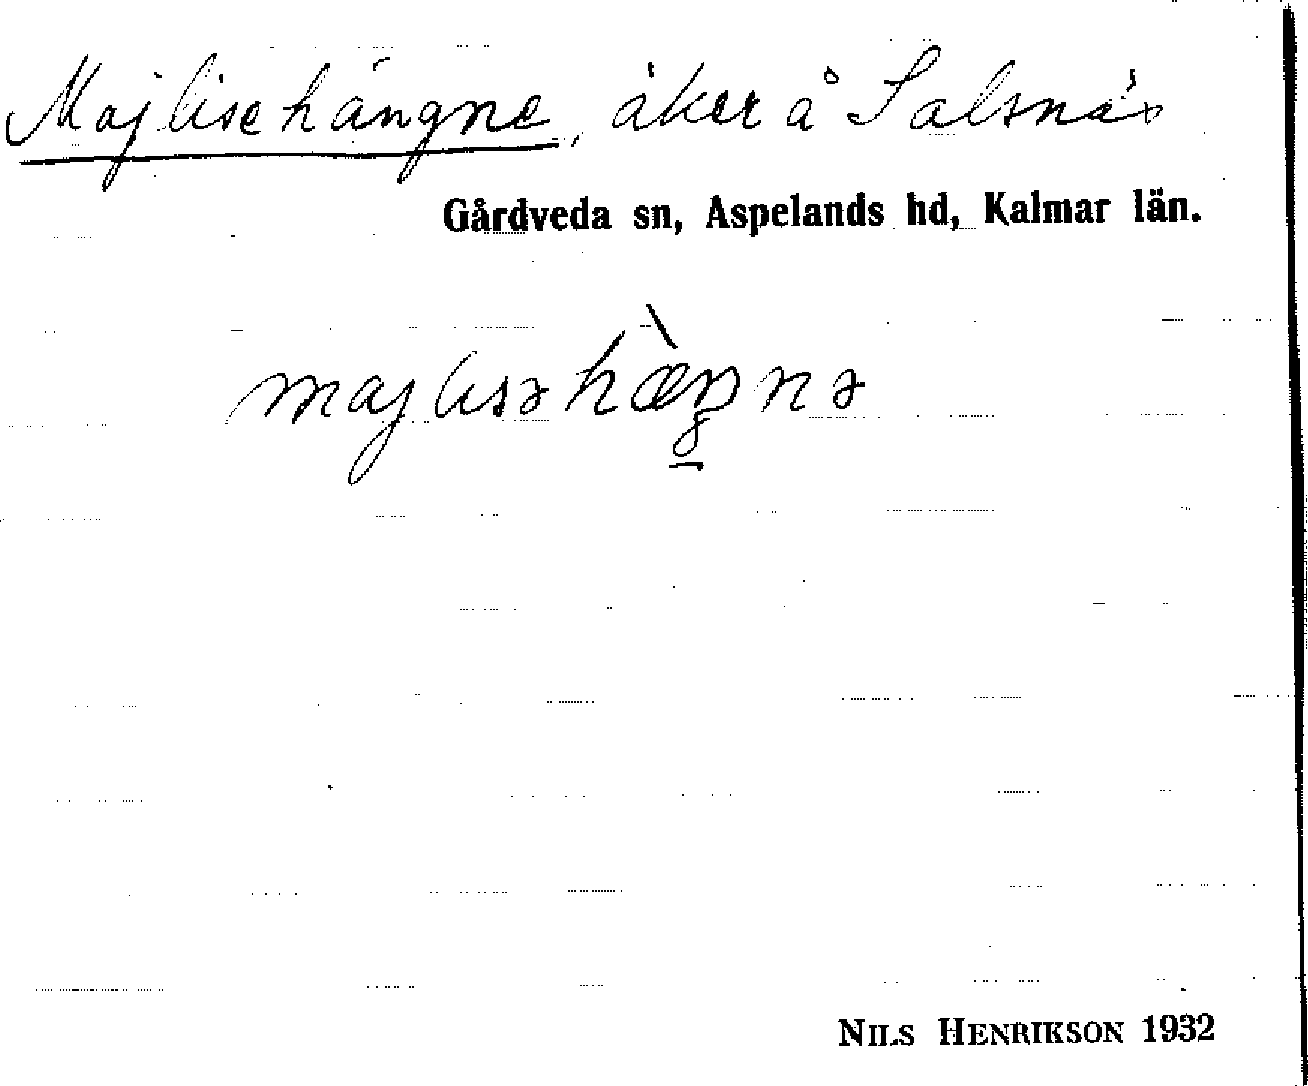 Majlisehängne, åker å Salsnäs
Gårdveda sn, Aspelands hd, Kalmar län.
majlisəhæ̀ŋnə
NILS HENRIKSON 1932